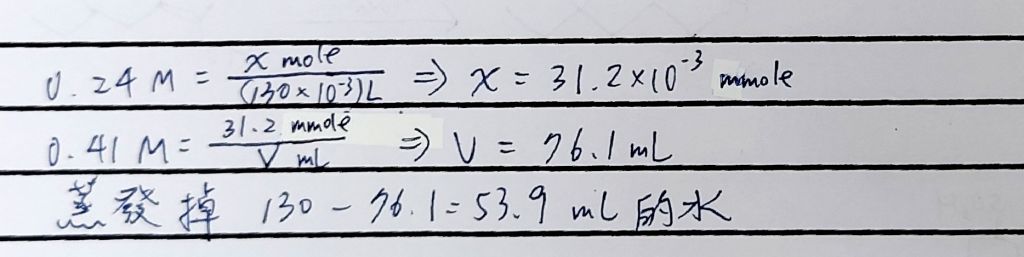 0.24 M = x mole / (130 × 10⁻³) L ⇒ x = 31.2 × 10⁻³ mmole
0.41 M = 31.2 mmole / V mL ⇒ V = 76.1 mL
蒸發掉 130 - 76.1 = 53.9 mL 的水